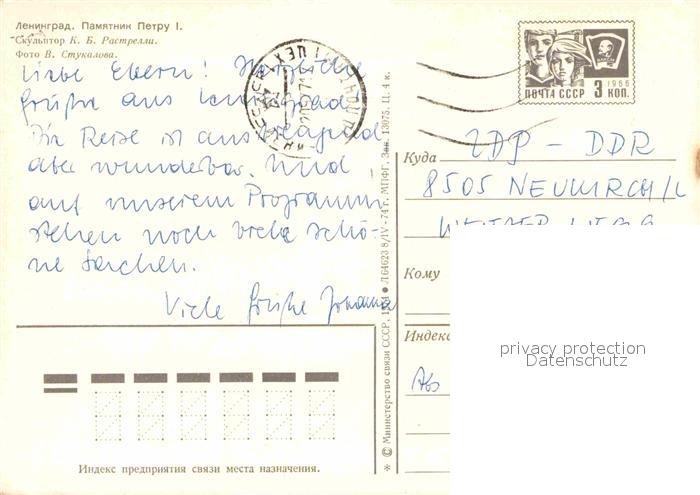 Ленинград. Памятник Петру I.
Скульптор К. Б. Растрелли.
Фото В. Стукалова.
Liebe Eltern! Herzliche
Grüße aus Leningrad.
Die Reise ist anstrengend
aber wunderbar. Und
auf unserem Programm
stehen noch viele schö-
ne Sachen.
Viele Grüße Johanna
1966
ПОЧТА СССР 3 КОП.
Куда
DDR
8505 NEUKIRCH/L
Кому
Индекс
Abs
privacy protection
Datenschutz
Индекс предприятия связи места назначения.
* © Министерство связи СССР, 1974 ● Л 64623 8/IV-74 г. МПФГ. Зак. 13075. Ц. 4 к.